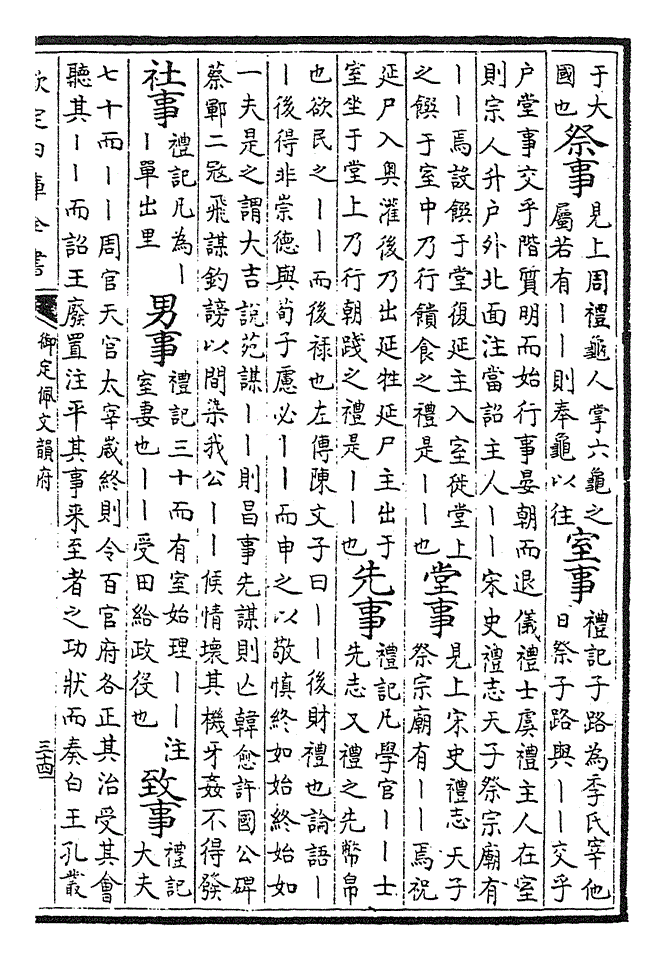 于大
國也
祭事
見上周禮龜人掌六龜之
屬若有丨丨則奉龜以往
室事
禮記子路為季氏宰他
日祭子路與丨丨交乎
户堂事交乎階質明而始行事晏朝而退儀禮士虞禮主人在室
則宗人升户外北面注當詔主人丨丨宋史禮志天子祭宗廟有
丨丨焉設饌于堂復延主入室徙堂上
之饌于室中乃行饋食之禮是丨丨也
堂事
見上宋史禮志天子
祭宗廟有丨丨焉祝
延尸入奥灌後乃出延牲延尸主出于
室坐于堂上乃行朝踐之禮是丨丨也
先事
禮記凡學官丨丨士
先志又禮之先幣帛
也欲民之丨丨而後禄也左傳陳文子曰丨丨後財禮也論語丨
丨後得非崇德與荀子慮必丨丨而申之以敬慎終如始終始如
一夫是之謂大吉說苑謀丨丨則昌事先謀則亾韓愈許國公碑
蔡鄆二冦飛謀釣謗以間染我公丨丨候情壞其機牙姦不得發
社事
禮記凡為丨
丨單出里
男事
禮記三十而有室始理丨丨注
室妻也丨丨受田給政役也
致事
禮記
大夫
七十而丨丨周官天官太宰歲終則令百官府各正其治受其會
聽其丨丨而詔王廢置注平其事来至者之功狀而奏白王孔叢
欽定四庫全書
御定佩文韻府
三十四